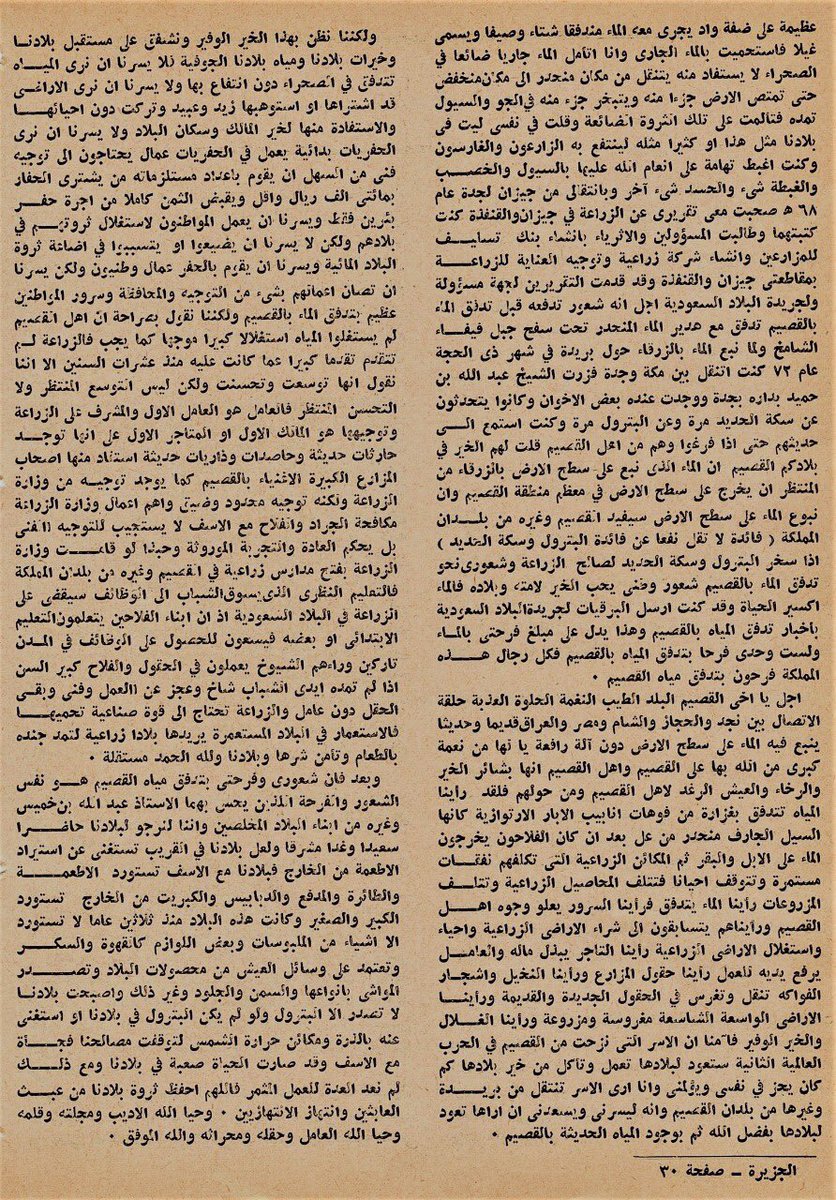 عظيمة على ضفة واد يجرى معه الماء مندفقا شتاء وصيفا ويسمى
غيلا فاستحميت بالماء الجارى وانا اتأمل الماء جاريا ضائعا في
الصحراء لا يستفاد منه يتنقل من مكان منحدر الى مكان منخفض
حتى تمتص الارض جزءا منه ويتبخر جزء منه في الجو والسيول
تمده فتألمت على تلك الثروة الضائعة وقلت في نفسى ليت فى
بلادنا مثل هذا او كثيرا مثله لينتفع به الزارعون والغارسون
وكنت اغبط تهامة على انعام الله عليها بالسيول والخصب
والغبطة شىء والحسد شىء آخر وبانتقالى من جيزان لجدة عام
٦٨ ه صحبت معى تقريرى عن الزراعة في جيزان والقنفذة كنت
كتبتهما وطالبت المسؤولين والاثرياء بانشاء بنك تسليف
للمزارعين وانشاء شركة زراعية وتوجيه العناية للزراعة
بمقاطعتى جيزان والقنفذة وقد قدمت التقريرين لجهة مسؤولة
ولجريدة البلاد السعودية اجل انه شعور تدفعه قبل تدفق الماء
بالقصيم تدفق مع هدير الماء المنحدر تحت سفح جبل فيفاء
الشامخ ولما نبع الماء بالزرقاء حول بريدة في شهر ذى الحجة
عام ٧٢ كنت اتنقل بين مكة وجدة فزرت الشيخ عبد الله بن
حميد بداره بجدة ووجدت عنده بعض الاخوان وكانوا يتحدثون
عن سكة الحديد مرة وعن البترول مرة وكنت استمع الى
حديثهم حتى اذا فرغوا وهم من اهل القصيم قلت لهم الخير في
بلادكم القصيم ان الماء الذى نبع على سطح الارض بالزرقاء من
المنتظر ان يخرج على سطح الارض في معظم منطقة القصيم وان
نبوع الماء على سطح الارض سيفيد القصيم وغيره من بلدان
المملكة ( فائدة لا تقل نفعا عن فائدة البترول وسكة الحديد )
اذا سخر البترول وسكة الحديد لصالح الزراعة وشعورى نحو
تدفق الماء بالقصيم شعور وطنى يحب الخير لامته وبلاده فالماء
اكسير الحياة وقد كنت ارسل البرقيات لجريدة البلاد السعودية
باخبار تدفق المياه بالقصيم وهذا يدل على مبلغ فرحتى بالماء
ولست وحدى فرحا بتدفق المياه بالقصيم فكل رجال هذه
المملكة فرحون بتدفق مياه القصيم ٠
اجل يا اخى القصيم البلد الطيب النغمة الحلوة العذبة حلقة
الاتصال بين نجد والحجاز والشام ومصر والعراق قديما وحديثا
ينبع فيه الماء على سطح الارض دون آلة رافعة يا لها من نعمة
كبرى من الله بها على القصيم واهل القصيم انها بشائر الخير
والرخاء والعيش الرغد لاهل القصيم ومن حولهم فلقد رأينا
المياه تتدفق بغزارة من فوهات انابيب الابار الارتوازية كانها
السيل الجارف منحدر من عل بعد ان كان الفلاحون يخرجون
الماء على الابل والبقر ثم المكائن الزراعية التى تكلفهم نفقات
مستمرة وتتوقف احيانا فتتلف المحاصيل الزراعية وتتلف
المزروعات رأينا الماء يتدفق فرأينا السرور يعلو وجوه اهل
القصيم ورأيناهم يتسابقون الى شراء الاراضى الزراعية واحياء
واستغلال الاراضى الزراعية رأينا التاجر يبذل ماله والعامل
يرفع يديه للعمل رأينا حقول المزارع ورأينا النخيل واشجار
الفواكه تنقل وتغرس في الحقول الجديدة والقديمة ورأينا
الاراضى الواسعة الشاسعة مغروسة ومزروعة ورأينا الغلال
والخير الوفير فآمنا ان الاسر التى نزحت من القصيم في الحرب
العالمية الثانية ستعود لبلادها تعمل وتأكل من خير بلادها كم
كان يحز في نفسى ويؤلمنى وانا ارى الاسر تنتقل من بريدة
وغيرها من بلدان القصيم وانه ليسرنى ويسعدنى ان اراها تعود
لبلادها بفضل الله ثم بوجود المياه الحديثة بالقصيم ٠
ولكننا نظن بهذا الخير الوفير ونشفق على مستقبل بلادنا
وخيرات بلادنا ومياه بلادنا الجوفية فلا يسرنا ان نرى المياه
تتدفق في الصحراء دون انتفاع بها ولا يسرنا ان نرى الاراضى
قد اشتراها او استوهبها زيد وعبيد وتركت دون احيائها
والاستفادة منها لخير المالك وسكان البلاد ولا يسرنا ان نرى
الحفريات بدائية يعمل في الحفريات عمال يحتاجون الى توجيه
فنى من السهل ان يقوم باعداد مستلزماته من يشترى الحفار
بمائتى الف ريال واقل ويقبض الثمن كاملا من اجرة حفر
بئرين فقط ويسرنا ان يعمل المواطنون لاستغلال ثروتهم في
بلادهم ولكن لا يسرنا ان يضيعوا او يتسببوا في اضاعة ثروة
البلاد المائية ويسرنا ان يقوم بالحفر عمال وطنيون ولكن يسرنا
ان تصان اعمالهم بشىء من التوجيه والمحافظة وسرور المواطنين
عظيم بتدفق الماء بالقصيم ولكننا نقول بصراحة ان اهل القصيم
لم يستغلوا المياه استغلالا كبيرا موجها كما يجب فالزراعة لم
تتقدم تقدما كبيرا عما كانت عليه منذ عشرات السنين الا اننا
نقول انها توسعت وتحسنت ولكن ليس التوسع المنتظر ولا
التحسن المنتظر فالعامل هو العامل الاول والمشرف على الزراعة
وتوجيهها هو المالك الاول او المتأجر الاول على انها توجد
حارثات حديثة وحاصدات وذاريات حديثة استفاد منها اصحاب
المزارع الكبيرة الاغنياء بالقصيم كما يوجد توجيه من وزارة
الزراعة ولكنه توجيه محدود وضيق واهم اعمال وزارة الزراعة
مكافحة الجراد والفلاح مع الاسف لا يستجيب للتوجيه الفنى
بل يحكم العادة والتجربة الموروثة وحبذا لو قامت وزارة
الزراعة بفتح مدارس زراعية في القصيم وغيره من بلدان المملكة
فالتعليم النظرى الذى يسوق الشباب الى الوظائف سيقضى على
الزراعة في البلاد السعودية اذ ان ابناء الفلاحين يتعلمون التعليم
الابتدائى او بعضه فيسعون للحصول على الوظائف في المدن
تاركين وراءهم الشيوخ يعملون في الحقول والفلاح كبير السن
اذا لم تمده ايدى الشباب شاخ وعجز عن العمل وفنى وبقى
الحقل دون عامل والزراعة تحتاج الى قوة صناعية تحميها
فالاستعمار في البلاد المستعمرة يريدها بلادا زراعية لتمد جنده
بالطعام وتأمن شرها وبلادنا ولله الحمد مستقلة ٠
وبعد فان شعورى وفرحتى بتدفق مياه القصيم هو نفس
الشعور والفرحة اللذين يحس بهما الاستاذ عبد الله بن خميس
وغيره من ابناء البلاد المخلصين واننا لنرجو لبلادنا حاضرا
سعيدا وغدا مشرقا ولعل بلادنا في القريب تستغنى عن استيراد
الاطعمة من الخارج فبلادنا مع الاسف تستورد الاطعمة
والطائرة والمدفع والدبابيس والكبريت من الخارج تستورد
الكبير والصغير وكانت هذه البلاد منذ ثلاثين عاما لا تستورد
الا اشياء من الملبوسات وبعض اللوازم كالقهوة والسكر
وتعتمد على وسائل العيش من محصولات البلاد وتصدر
المواشى بانواعها والسمن والجلود وغير ذلك واصبحت بلادنا
لا تصدر الا البترول ولو لم يكن البترول في بلادنا او استغنى
عنه بالذرة ومكائن حرارة الشمس لتوقفت مصالحنا فجأة
مع الاسف وقد صارت الحياة صعبة في بلادنا ومع ذلك
لم نعد العدة للعمل المثمر فاللهم احفظ ثروة بلادنا من عبث
العابثين وانتهاز الانتهازيين ٠ وحيا الله الاديب ومجلته وقلمه
وحيا الله العامل وحقله ومحراثه والله الموفق ٠
الجزيرة ــ صفحة ٣٠